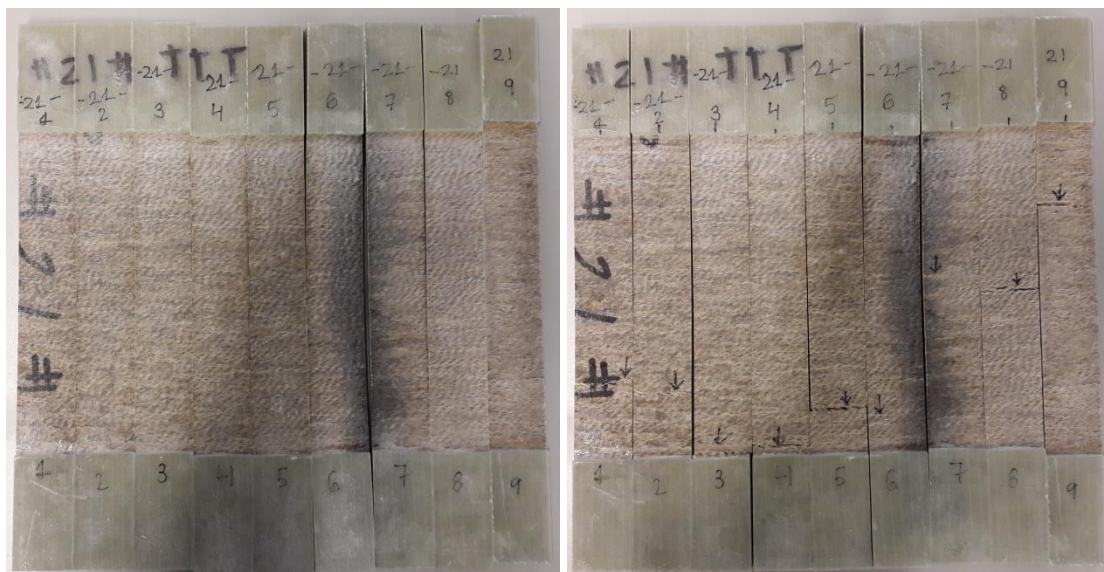 #21# TTT
-21- -21- -21- -21- -21- -21- -21- -21 21
1 2 3 4 5 6 7 8 9
#21#
1 2 3 4 5 6 7 8 9
#21# TTT
-21- -21- -21- -21- -21- -21- -21- -21- 21
1 2 3 4 5 6 7 8 9
#21#
1 2 3 4 5 6 7 8 9